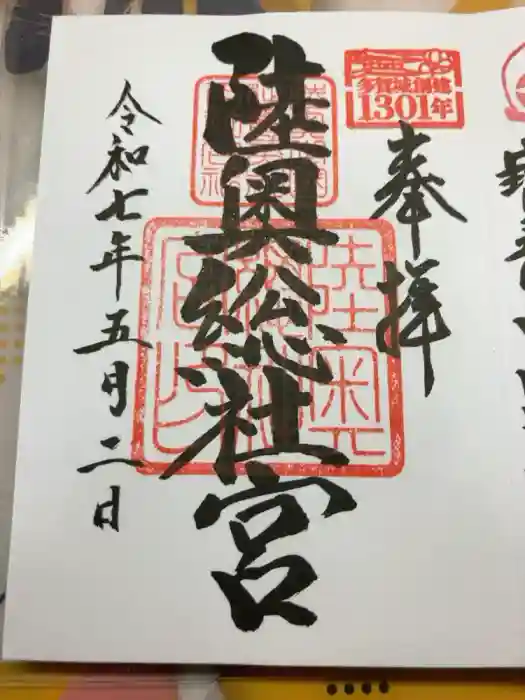 多賀城創建
1301年
奉拝
陸奥総社宮
令和七年五月二日